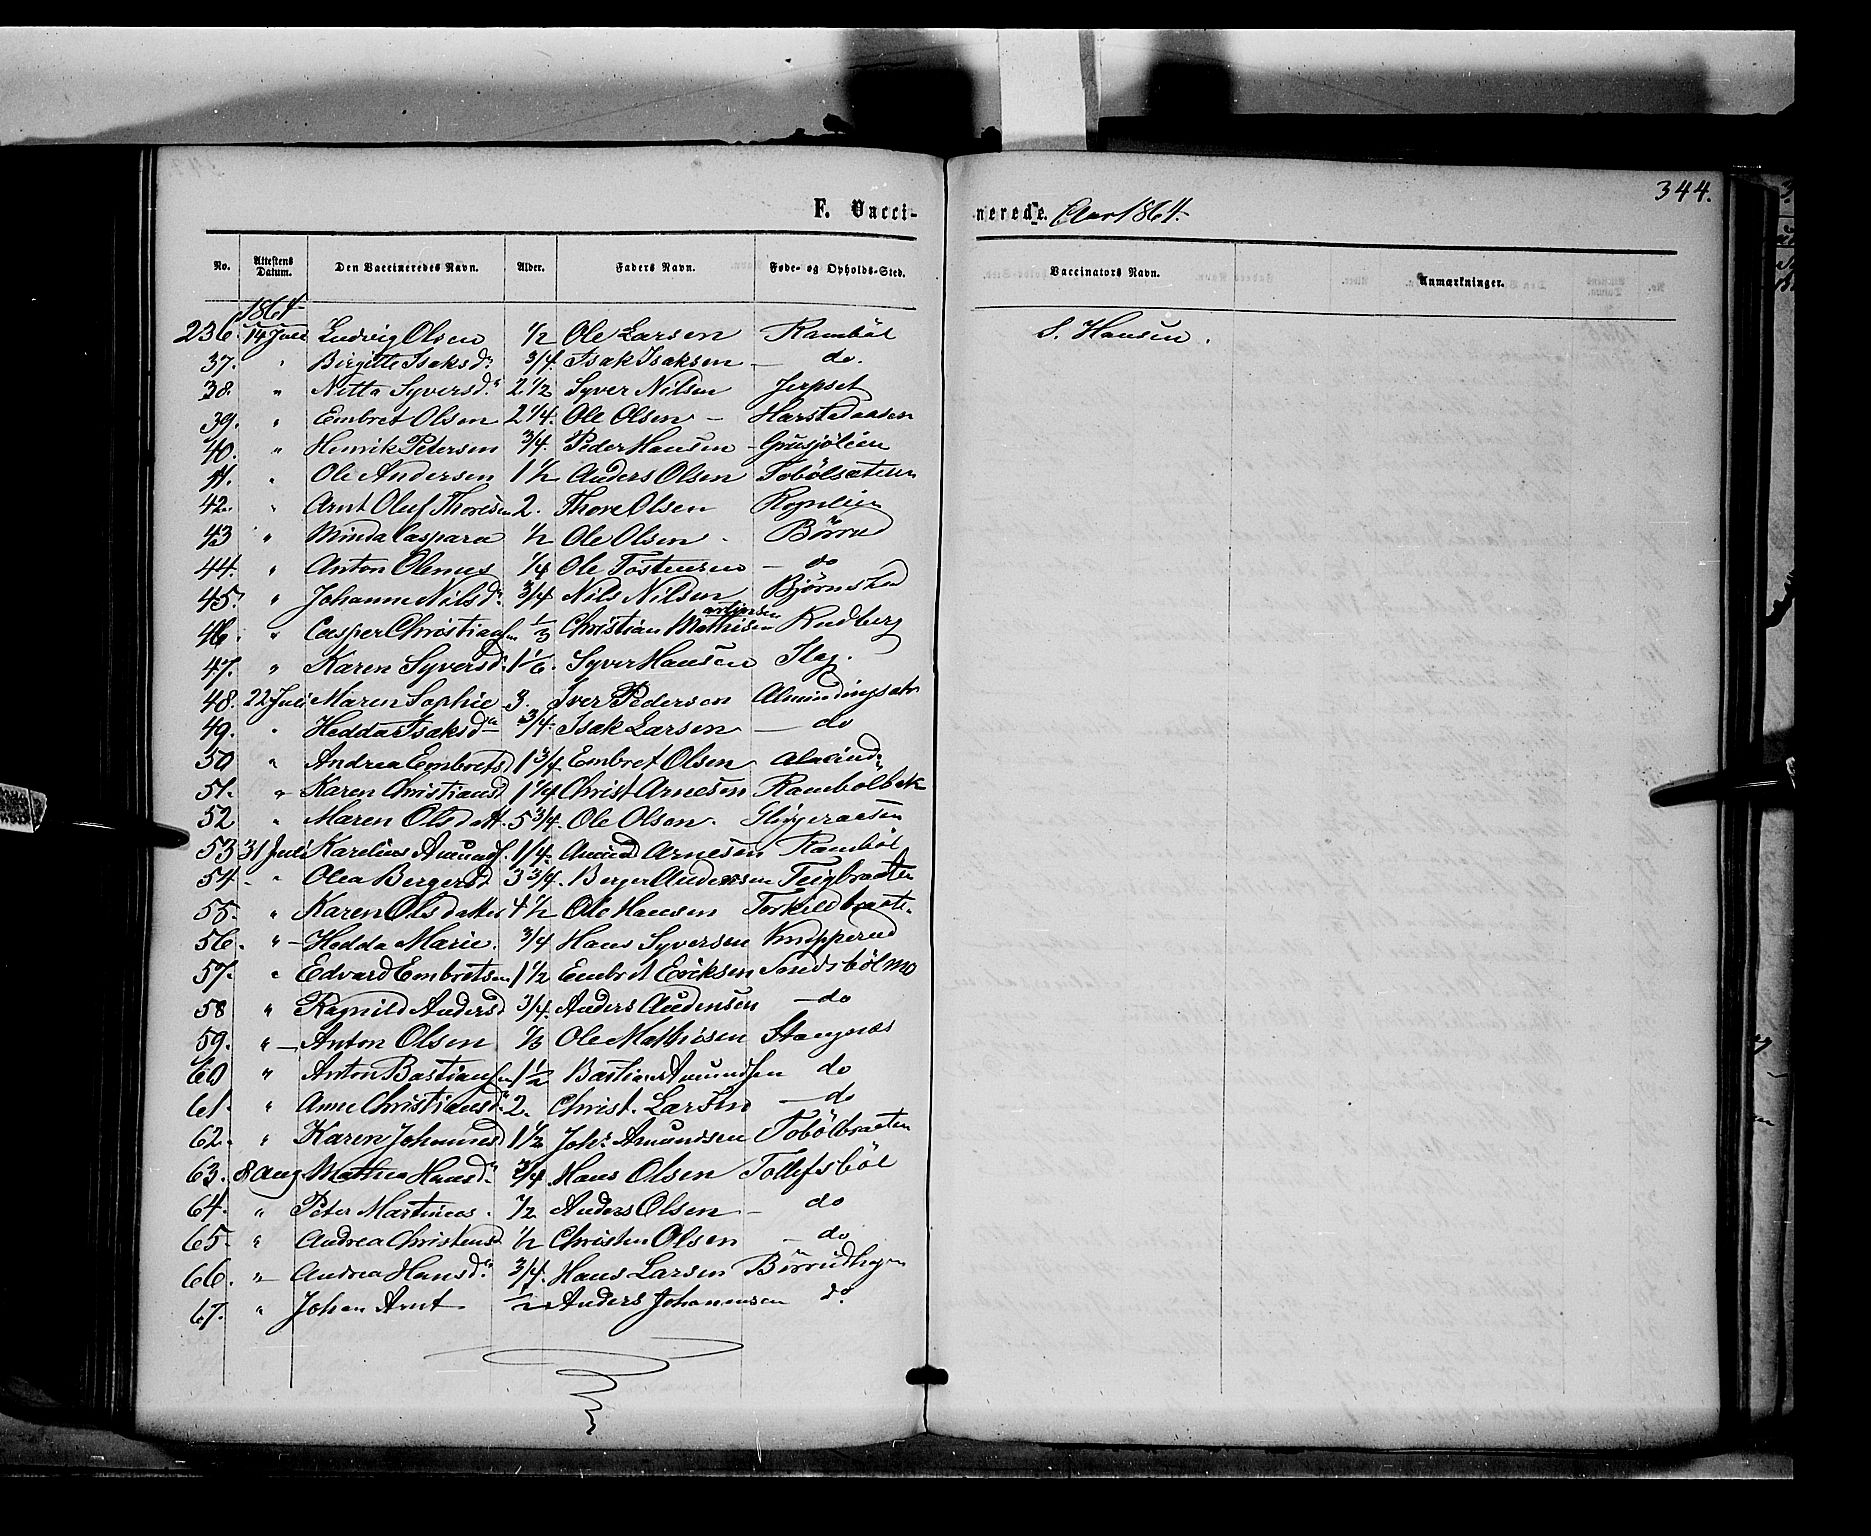 344.
F. Vacci-nerede. Aar 1864.
No. Attestens Datum. Den Vaccineredes Navn. Alder. Faders Navn. Føde- og Opholds-Sted. Vaccinators Navn. Anmærkninger.
1864
236. 14 Juli Ludvig Olsen 1/2 Ole Larsen Rambøl S. Hansen.
37. " Birgitte Isaksd. 3/4. Isak Isaksen - do.
38. " Netta Syversd. 2 1/2 Syver Nilsen Jerpset
39. " Embret Olsen 2 1/4. Ole Olsen - Harstadaasen
40. " Henrik Petersen 3/4. Peder Hansen - Grusjøleien
41. " Ole Andersen 1 1/2 Anders Olsen Tobølsæteren
42. " Arnt Oluf Thoresen 2. Thore Olsen Rognlien
43 " Minda Caspara 1/2 Ole Olsen - Børrud
44. " Anton Olenus 1/4 Ole Tostensen - do
45. " Johanne Nilsd. 3/4 Nils Nilsen Bjørnstad
46. " Casper Christiansen 1/3 Christian Mathisen Rudberg
47. " Karen Syversd. 1 1/6. Syver Hansen Flag.
48. 22 Juli Maren Sophie 3. Iver Pedersen Almindings
49. " Hedda Isaksd. 3/4. Isak Larsen - do
50 " Andrea Embretsd 1 3/4. Embret Olsen Almind.
51. " Karen Christiansd 1 1/4 Christ. Arnesen Rambølbek
52 " Maren Olsdatt. 5 3/4. Ole Olsen.
53 31 Juli Karelius Amunds. 1/4. Amund Arnesen Rambøl
54. " Olea Bergersd 3 3/4. Berger Andersen Teigbraaten
55. " Karen Olsdatter 4 1/2 Ole Hansen Torkildbraate.
56. " - Hedda Marie. 3/4 Hans Syversen Knapperud
57. " Edvard Embretsen 1 1/2 Embret Eriksen Sandsbøl mo
58 " Ragnild Andersd 3/4. Anders Audensen - do
59. " - Anton Olsen 1/3 Ole Mathisen Stangnæs
60 " Anton Bastiansen 1 1/2 Bastian Amundsen do
61. " Anne Christiansd. 2. Christ. Larsen - do
62. " Karen Johannesd 1 1/2 Johs. Amundsen Tobølbraaten
63. 8 Aug Mathea Hansd. 3/4 Hans Olsen Tollefsbøl
64. " Peter Martinus. 1/2 Anders Olsen - do
65. " Andrea Christensd 1/2 Christen Olsen - do
66. " - Andrea Hansd. 3/4. Hans Larsen Børrudhagen
67. " Johan Arnt 1/2 Anders Johannesen do.